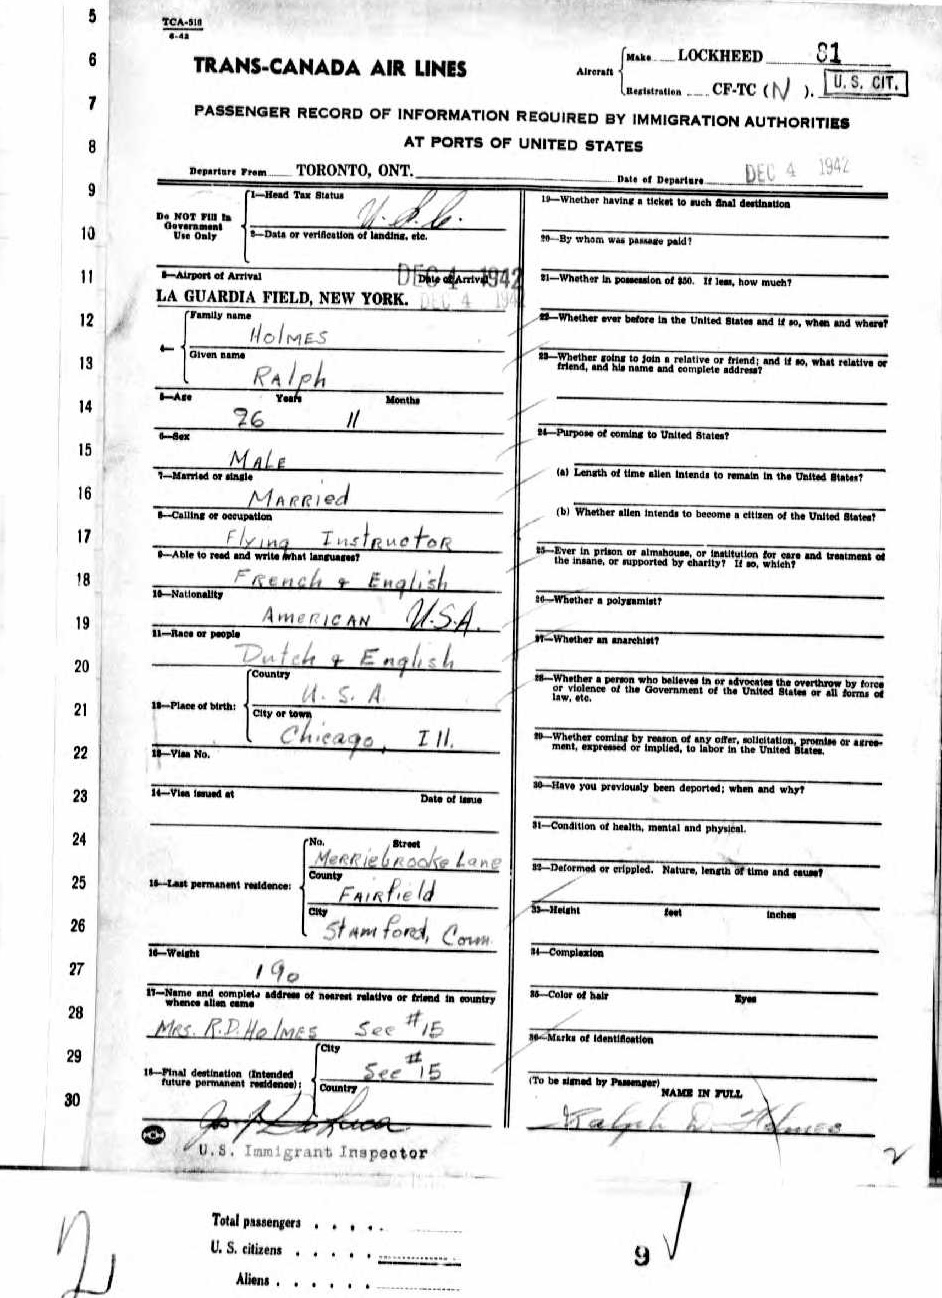 5
6
7
8
9
10
11
12
13
14
15
16
17
18
19
20
21
22
23
24
25
26
27
28
29
30
TCA-518
6-42
TRANS-CANADA AIR LINES
Aircraft
Make LOCKHEED 81
Registration CF-TC (N).
U. S. CIT.
PASSENGER RECORD OF INFORMATION REQUIRED BY IMMIGRATION AUTHORITIES
AT PORTS OF UNITED STATES
Departure From TORONTO, ONT.
Date of Departure DEC 4 1942
Do NOT Fill In
Government
Use Only
1—Head Tax Status
U.S.C.
2—Data or verification of landing, etc.
3—Airport of Arrival
Date of Arrival
DEC 4 1942
LA GUARDIA FIELD, NEW YORK.
DEC 4 194
4—
Family name
HOLMES
Given name
RALPH
5—Age Years Months
26 11
6—Sex
MALE
7—Married or single
MARRIED
8—Calling or occupation
Flying Instructor
9—Able to read and write what languages?
French & English
10—Nationality
AMERICAN U.S.A.
11—Race or people
Dutch & English
12—Place of birth:
Country
U. S. A
City or town
Chicago, Ill.
13—Visa No.
14—Visa issued at Date of issue
15—Last permanent residence:
No. Street
Merriebrooke Lane
County
FAIRfield
City
Stamford, Conn
16—Weight
190
17—Name and complete address of nearest relative or friend in country
whence alien came
Mrs. R.D. Holmes See #15
18—Final destination (Intended
future permanent residence):
City
See #15
Country
U.S. Immigrant Inspector
19—Whether having a ticket to such final destination
20—By whom was passage paid?
21—Whether in possession of $50. If less, how much?
22—Whether ever before in the United States and if so, when and where?
23—Whether going to join a relative or friend; and if so, what relative or
friend, and his name and complete address?
24—Purpose of coming to United States?
(a) Length of time alien intends to remain in the United States?
(b) Whether alien intends to become a citizen of the United States?
25—Ever in prison or almshouse, or institution for care and treatment of
the insane, or supported by charity? If so, which?
26—Whether a polygamist?
27—Whether an anarchist?
28—Whether a person who believes in or advocates the overthrow by force
or violence of the Government of the United States or all forms of
law, etc.
29—Whether coming by reason of any offer, solicitation, promise or agree-
ment, expressed or implied, to labor in the United States.
30—Have you previously been deported; when and why?
31—Condition of health, mental and physical.
32—Deformed or crippled. Nature, length of time and cause?
33—Height feet inches
34—Complexion
35—Color of hair Eyes
36—Marks of identification
(To be signed by Passenger)
NAME IN FULL
Ralph D. Holmes
2
Total passengers
U. S. citizens
Aliens
9